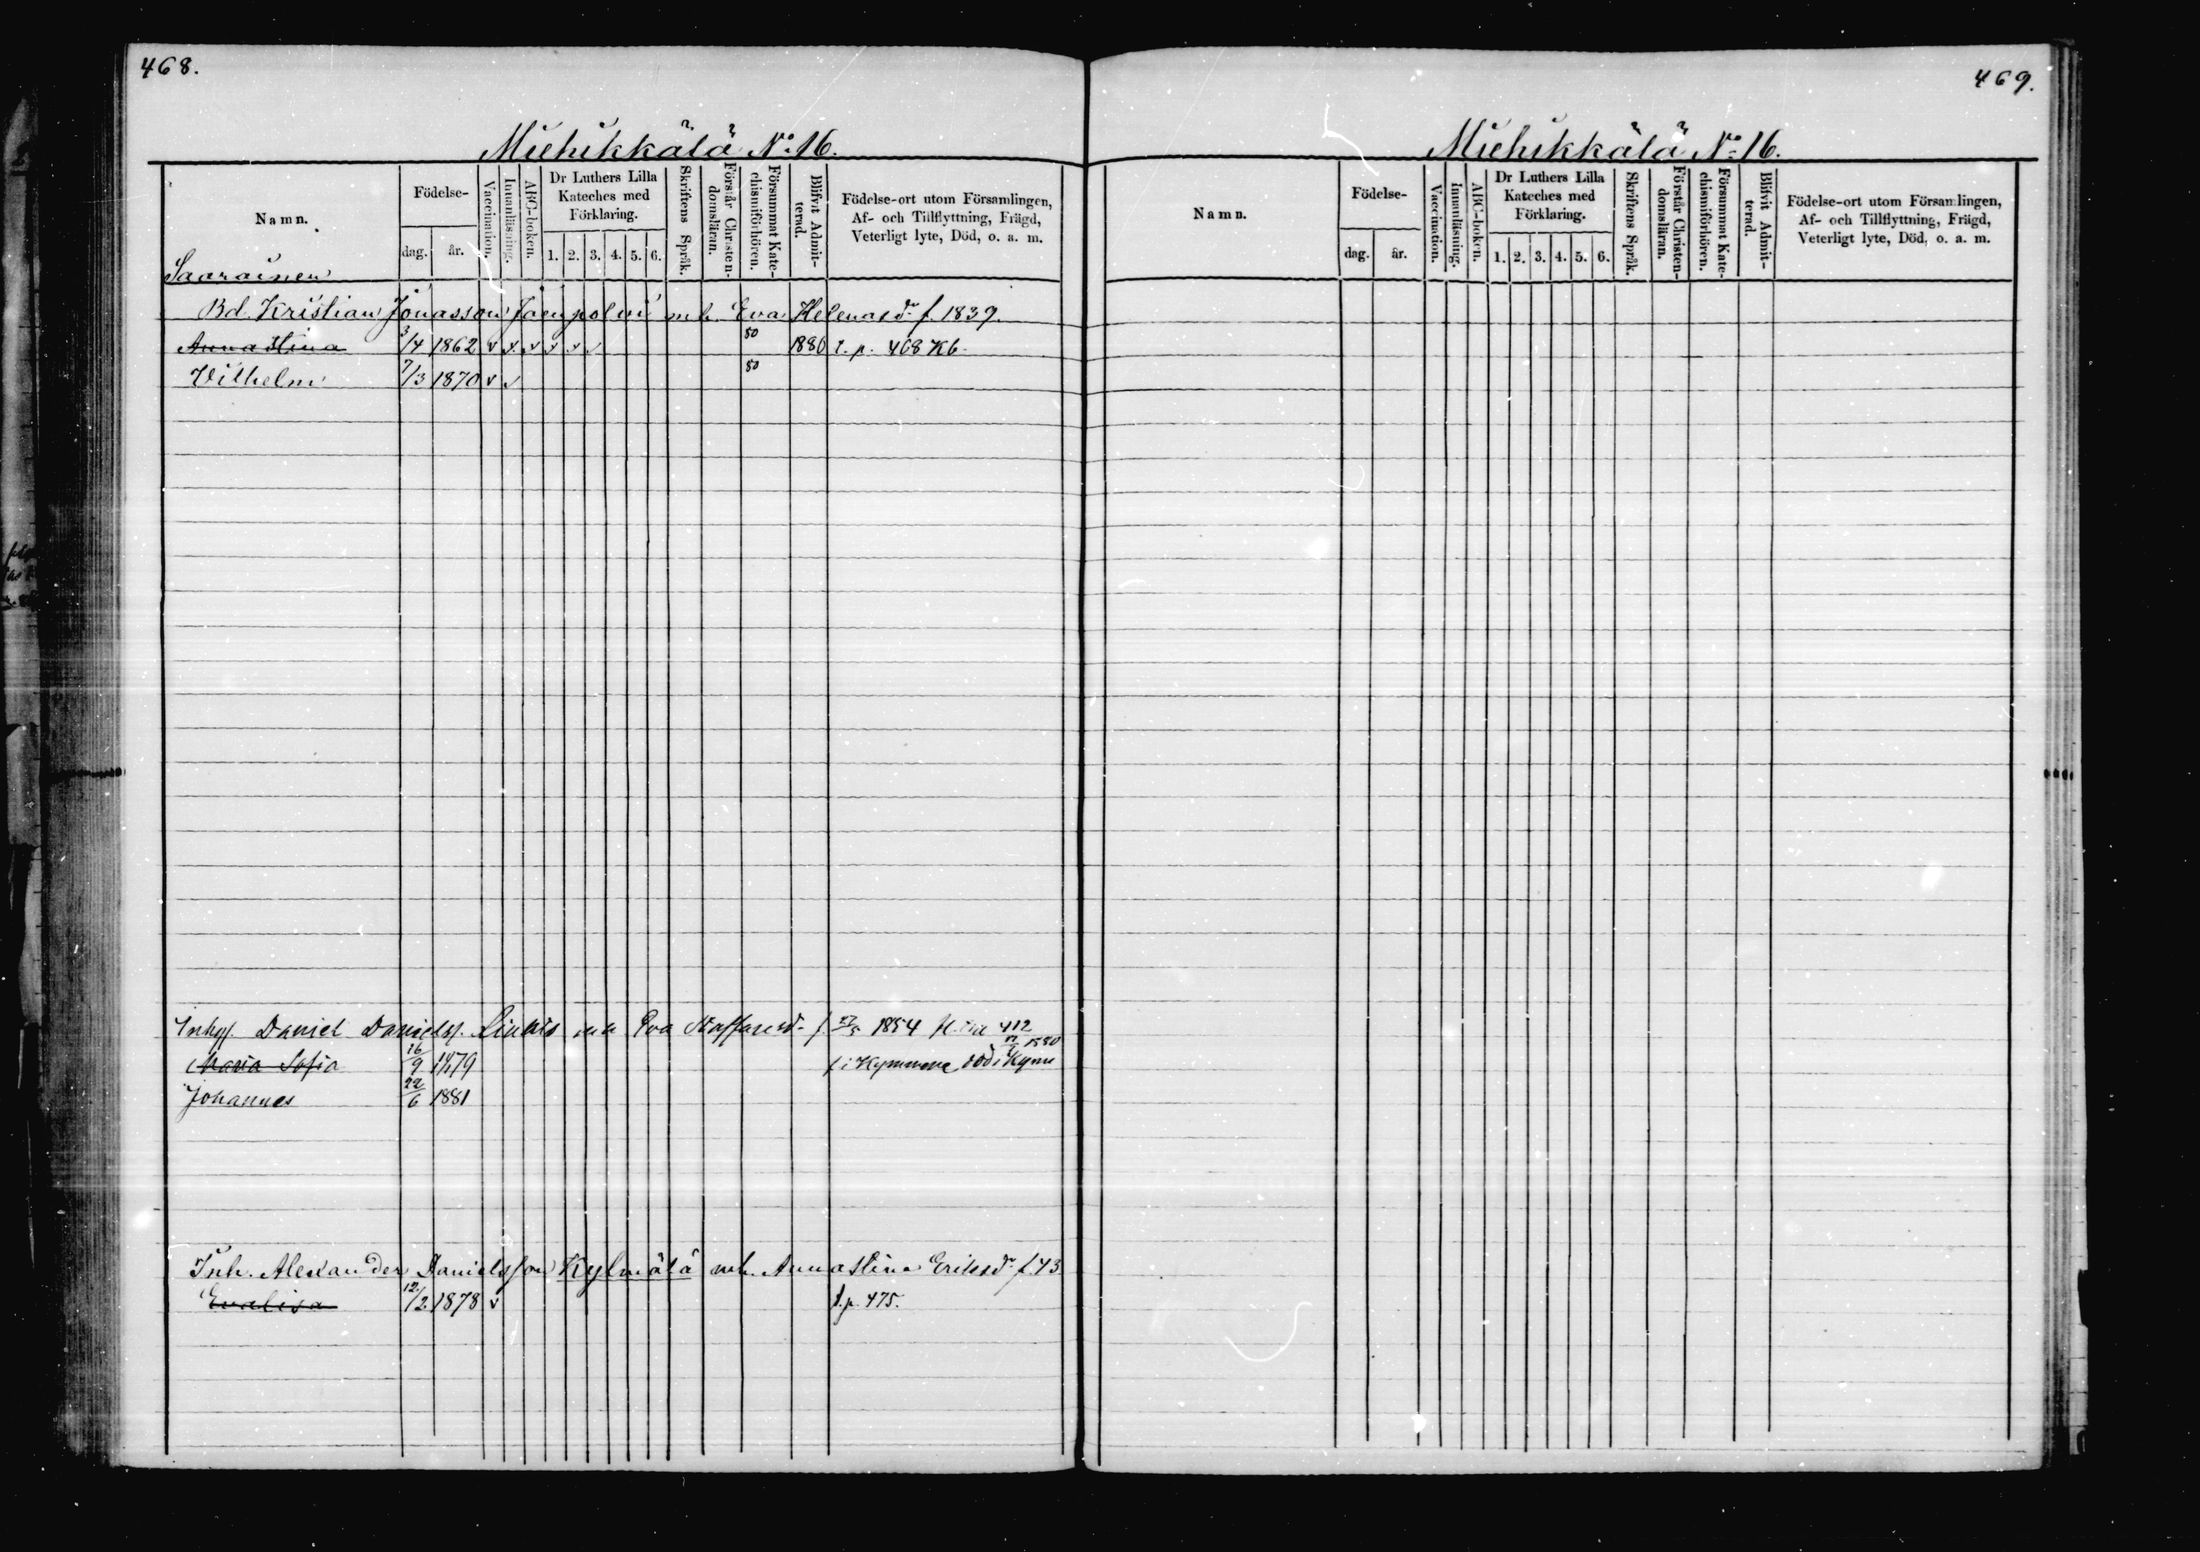 468.
Miehikkälä No: 16.
Namn.
Födelse-
dag. år.
Vaccination.
Innanläsning.
ABC-boken.
Dr Luthers Lilla
Kateches med
Förklaring.
1. 2. 3. 4. 5. 6.
Skriftens Språk.
Förstår Christen-
domsläran.
Försummat Kate-
chismiförhören.
Blifvit Admit-
terad.
Födelse-ort utom Församlingen,
Af- och Tillflyttning, Frägd,
Veterligt lyte, Död, o. a. m.
Saarainen
Bd. Kristian Jonasson Jäenpolvi mh. Eva Helenasdr f. 1839.
Anna Stina 3/4 1862 v v v v v v 80 1880 t. p. 468 Kb.
Vilhelm 7/3 1870 v v 80
Daniel Danielss. mh Eva Staffansd. f. 1854 412
Maria Sofia 16/9 1879 f i Kymmene död i Kymm 1880
Johannes 22/6 1881
Inh. Alexander Danielsson Kylmälä mh. Anna Stina Eriksdr f. 43
Eva Lisa 12/2 1878 v t. p. 475.
469.
Miehikkälä No: 16.
Namn.
Födelse-
dag. år.
Vaccination.
Innanläsning.
ABC-boken.
Dr Luthers Lilla
Kateches med
Förklaring.
1. 2. 3. 4. 5. 6.
Skriftens Språk.
Förstår Christen-
domsläran.
Försummat Kate-
chismiförhören.
Blifvit Admit-
terad.
Födelse-ort utom Församlingen,
Af- och Tillflyttning, Frägd,
Veterligt lyte, Död, o. a. m.